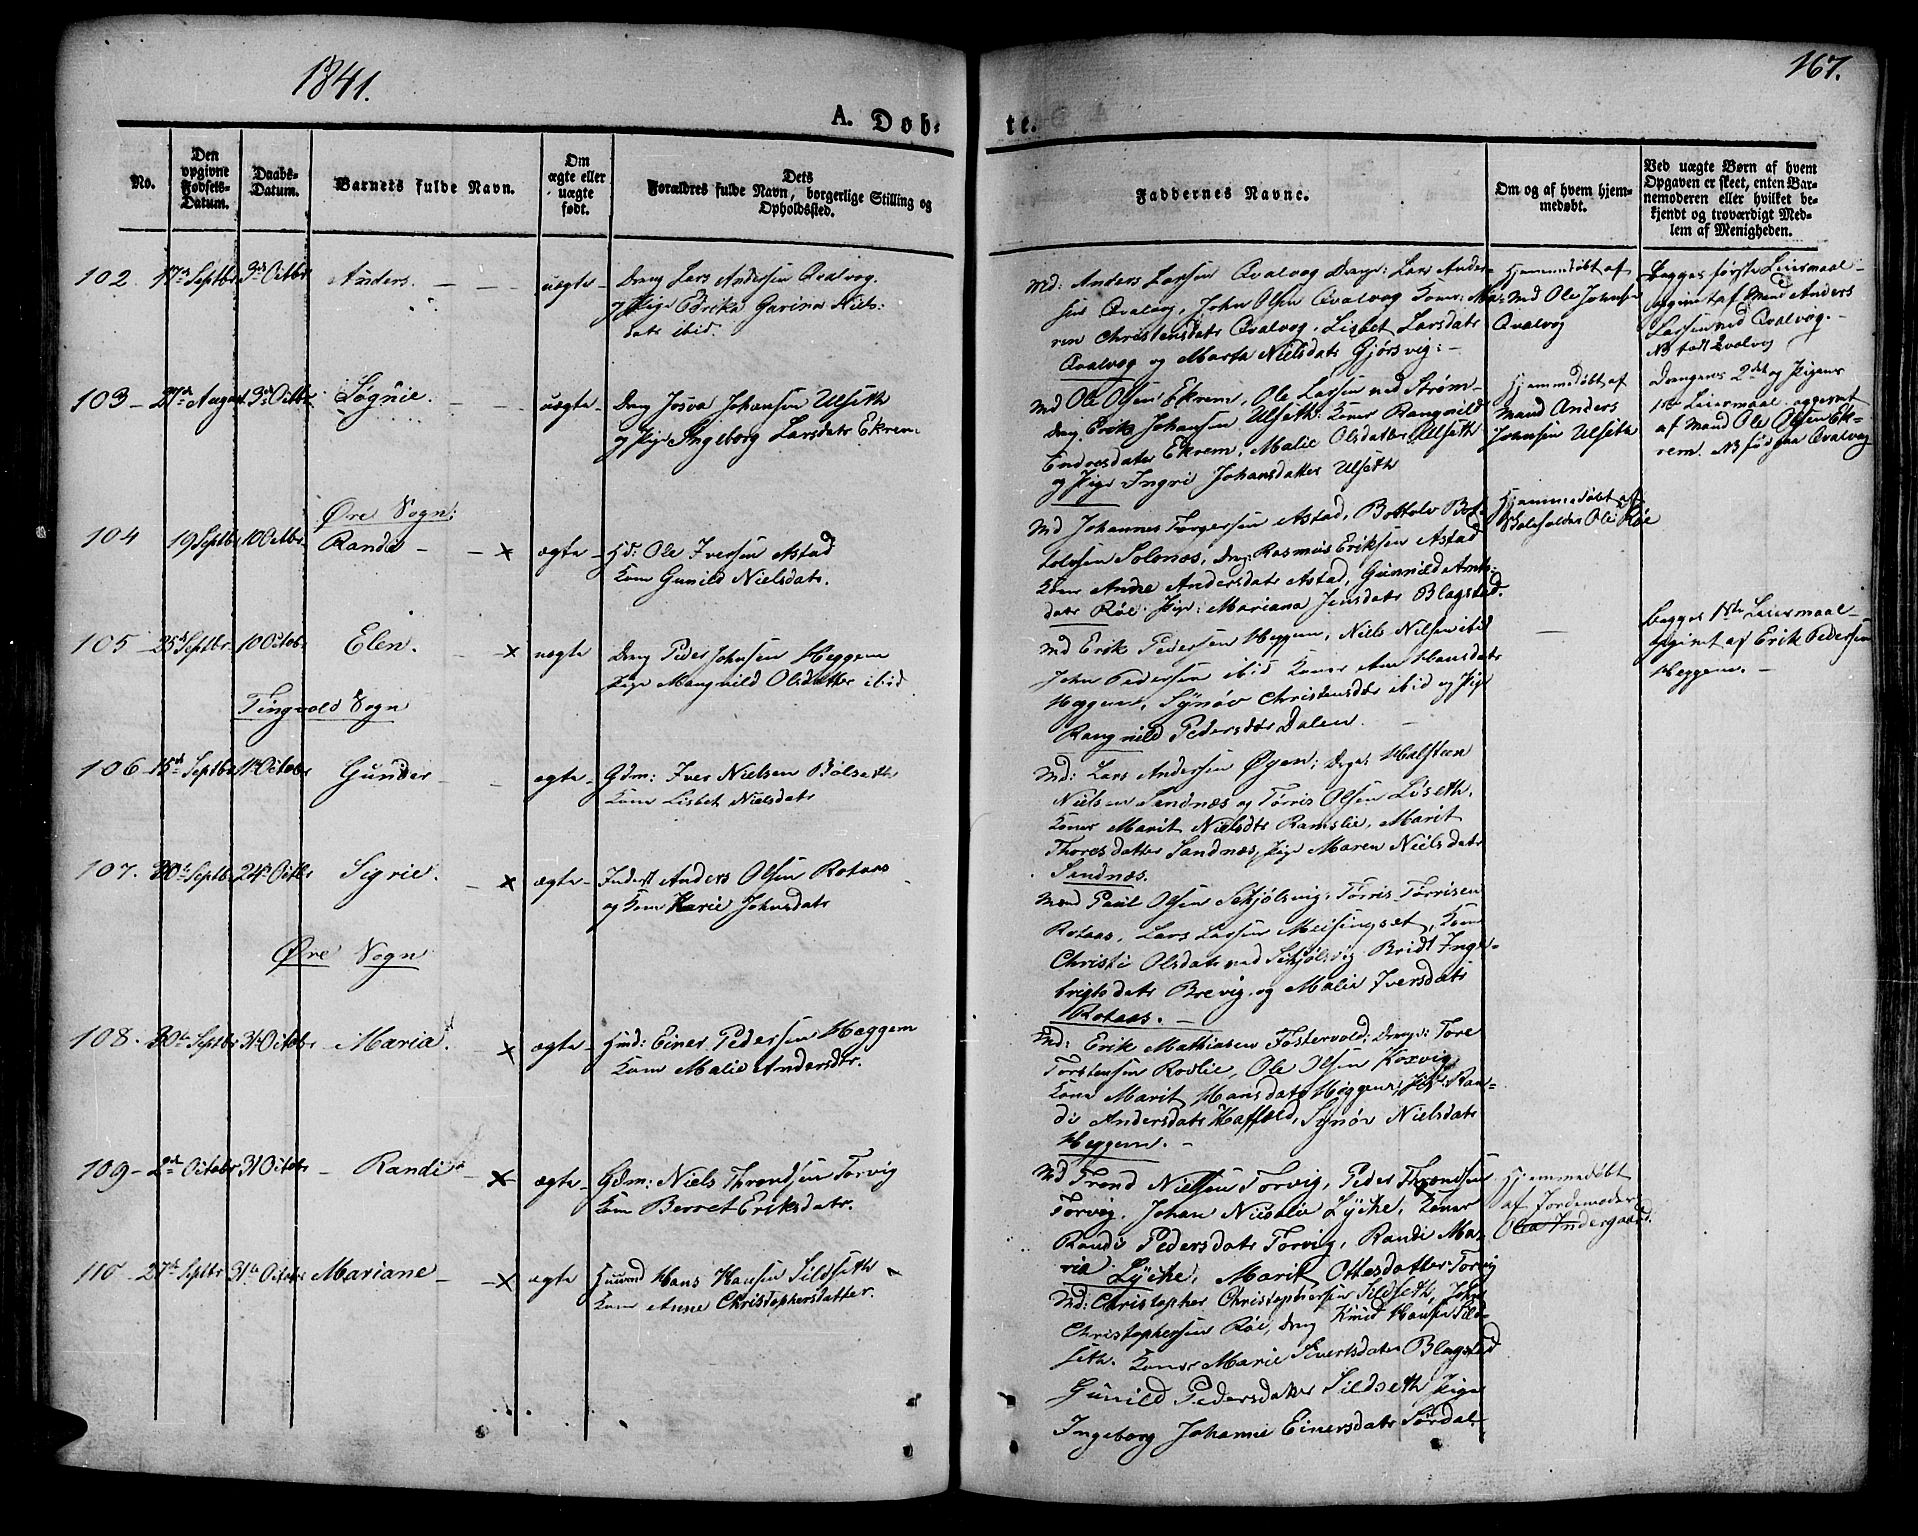 1841.
167.
A. Døb-
te.
No.
Den opgivne Fødsels-Datum.
Daabs-Datum.
Barnets fulde Navn.
Om ægte eller uægte født.
Dets Forældres fulde Navn, borgerlige Stilling og Opholdssted.
Faddernes Navne.
Om og af hvem hjem-
medøbt.
Ved uægte Børn af hvem
Opgaven er skeet, enten Bar-
nemoderen eller hvilket be-
kjendt og troværdigt Med-
lem af Menigheden.
102. 17de Septbr 3die Octbr Anders. uægte
Dreng Lars Andersen Qvalvog
og Pige Edrika Garina Niels-
datr ibid.
Md: Anders Larsen Qvalvog Drenge: Lars Ander-
sen Qvalvog, John Olsen Qvalvog Koner: Ma-
ren Christensdatr Qvalvog, Lisbet Larsdatr
Qvalvog og Marta Nielsdatr Gjørsvig:
Hjemmedøbt af
Md Ole Johnsen
Qvalvog
Begges første Leiermaal
opgivet af Mand Anders
Larsen ved Qvalvog.
NB født Qvalvog
103 27de August 3die Octbr Søgnie. uægte
Dreng Josva Johansen Ulseth
og Pige Ingeborg Larsdatr Ekrem
Md Ole Olsen Ekrem, Ole Larsen ved Strøm-
dreng Erik Johansen Ulseth: Koner Rangnild
Endresdatter Ekrem, Malie Olsdatter Ulseth
og Pige Ingri Johansdatter Ulseth
Hjemmedøbt af
Mand Anders
Johnsen Ulseth
Drengens 2det og Pigens
1ste Leiermaal opgivet
af Mand Ole Olsen Ek-
rem. NB født paa Qvalvog
Øre Sogn:
104 19 Septbr 10 Octbr Randi x ægte
Hd: Ole Iversen Astad
Kone Gunild Nielsdatr.
Md Johannes Torgersen Astad, Bottolv Bot-
tolvsen Solsnæs, dreng: Rasmus Eriksen Astad
Koner Andre Andersdatr Astad, Gunnild Amts-
datr Røe. Pige: Mariana Jensdatr Blagstad.
Hjemmedøbt af
Skoleholder Ole Røe
105 25de Septbr 10 Octobr Elen. x uægte
Dreng Peder Johnsen Heggem
Pige Mangnild Olsdatter ibid
Md Erik Pedersen Heggem, Niels Nilsen ibid
John Pedersen ibid Koner Ane Hansdatr
Heggem, Synøv Christensdtr ibid og Pige
Rangnild Pedersdtr Dalen.
Begges 1ste Leiermaal
opgivet af Erik Pedersen
Heggem.
Tingvold Sogn
106 15de Septbr 17de Octobr Gunder ægte
Gdm: Iver Nielsen Bølseth
Kone Lisbet Nielsdatr
Md: Lars Andersen Øyen; Drenge: Halsteen
Nielsen Sandnæs og Tørris Olsen Liseth,
Koner Marit Nielsdtr Ramslie, Marit
Thoresdatter Sandnæs, Pige Maren Nielsdatr
Sandnæs.
107. 20de Septbr 24de Octbr Sigrie. x ægte
Inderst Anders Olsen Rotaas
og Kone Karie Johnsdatr
Mænd Paul Olsen Skjølsvig, Tørris Tørrisen
Rotaas, Lars Larsen Meisingset, Kone
Christi Olsdatr ved Skjølsvig Bridt Inge-
brigtsdatr Brevig og Malie Iversdatr
Rotaas.
Øre Sogn
108. 30te Septbr 31te Octobr Maria. x ægte
Hmd: Einer Pedersen Heggem
Kone Malie Andersdtr.
Md: Erik Mathiasen Fostervold; Drenge: Tore
Torstensen Rovlie, Ole Olsen Koxvig
Kone Marit Hansdatr Heggem, Piger Ran-
di Andersdatr Haffsæld, Synøv Nielsdatr
Heggem.
109 2de Octobr 31 Octobr Randi x ægte
Gdm: Niels Throndsen Torvig
Kone Berret Eriksdatr.
Md Trond Nielsen Torvig, Peder Throndsen
Torvig, Johan Nicolai Lÿcke, Koner
Randi Pedersdatr Torvig, Randi Ma-
ria Lÿcke, Marit Ottesdatter Torvig
Hjemmedøbt
af Jordemoder
Olia Indergaard.
110 27de Septbr 31te Octobr Mariane x ægte
Huusmd Hans Hansen Sildseth
Kone Anne Christophersdatter.
Md: Christopher Christophersen Sildseth, John
Christophersen Røe, dreng Knud Hansen Sild-
seth. Koner Marie Sivertsdatr Blagstad
Gunild Pedersdatter Sildseth Pige
Ingeborg Johanne Einersdatr Sørdal.